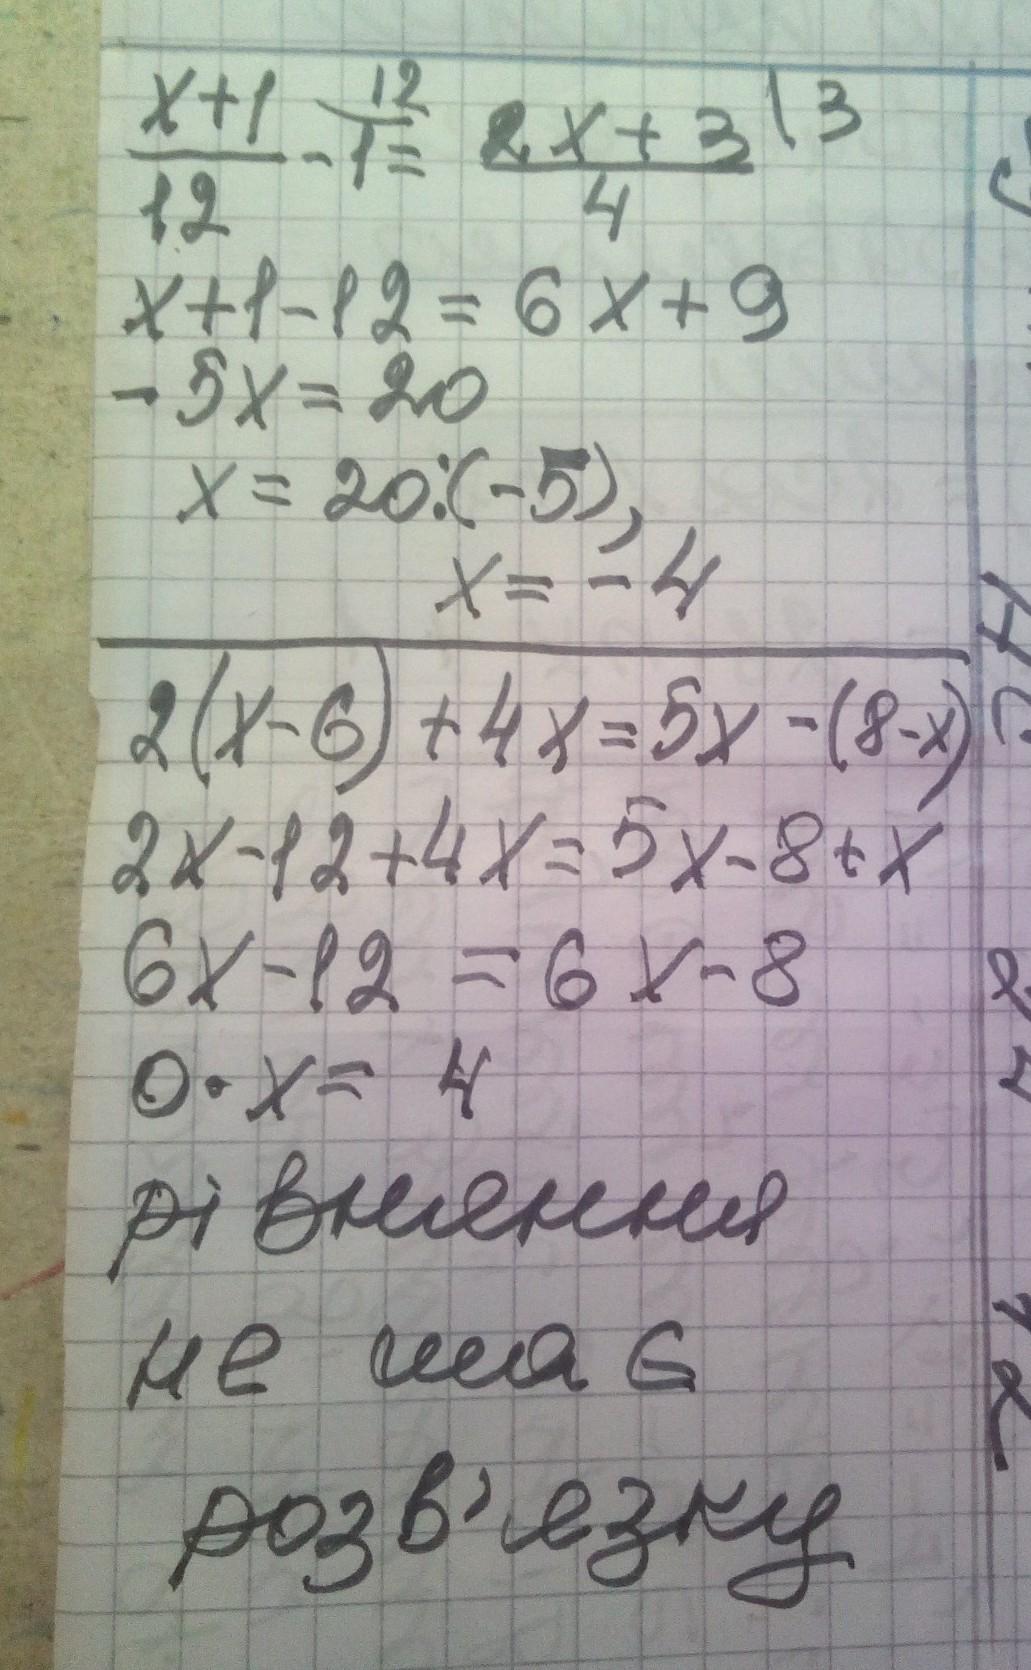 x+1/12 - 1 = 2x+3/4 \3
12
x+1-12 = 6x+9
-5x = 20
x = 20:(-5),
x = -4
2(x-6)+4x=5x-(8-x)
2x-12+4x=5x-8+x
6x-12 = 6x-8
0·x = 4
рівняння
не має
розв'язку